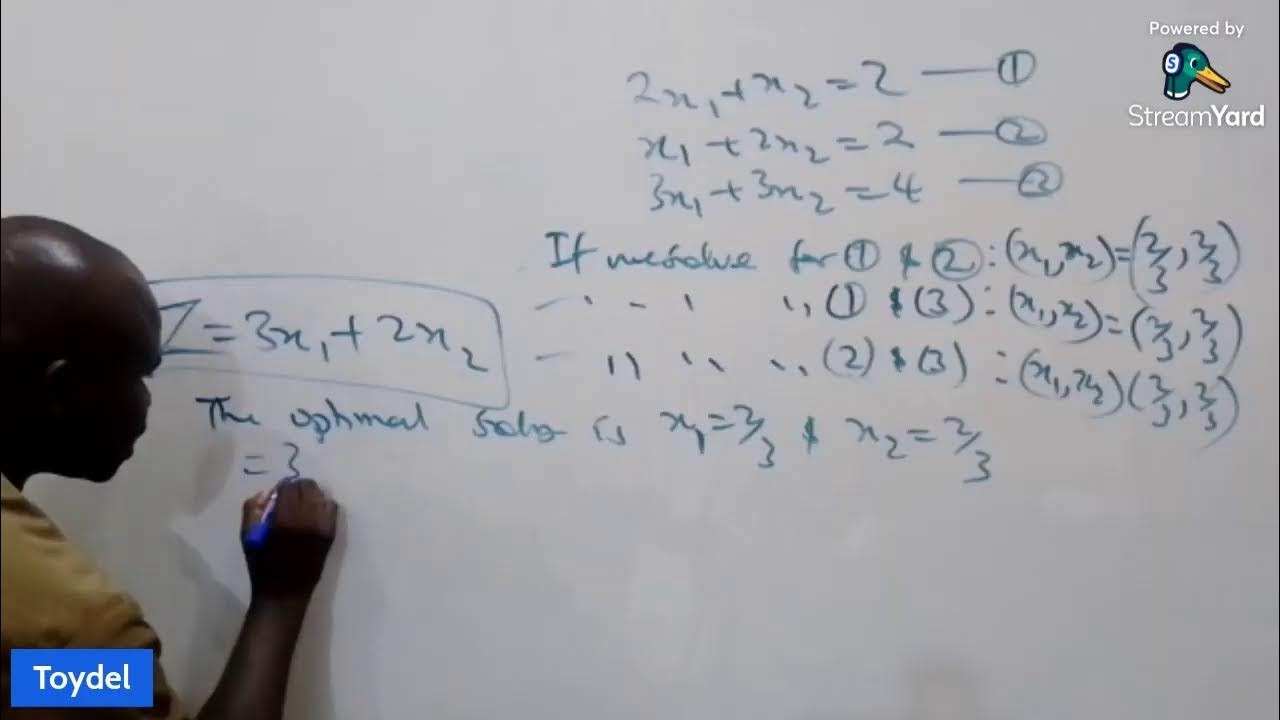 Powered by
StreamYard
2x₁ + x₂ = 2 — ①
x₁ + 2x₂ = 2 — ②
3x₁ + 3x₂ = 4 — ③
If we solve for ① & ② : (x₁, x₂) = (2/3, 2/3)
" " " " (1) & (3) : (x₁, x₂) = (2/3, 2/3)
" " " " (2) & (3) : (x₁, x₂) (2/3, 2/3)
Z = 3x₁ + 2x₂
The optimal soln is x₁ = 2/3 & x₂ = 2/3
= 3
Toydel